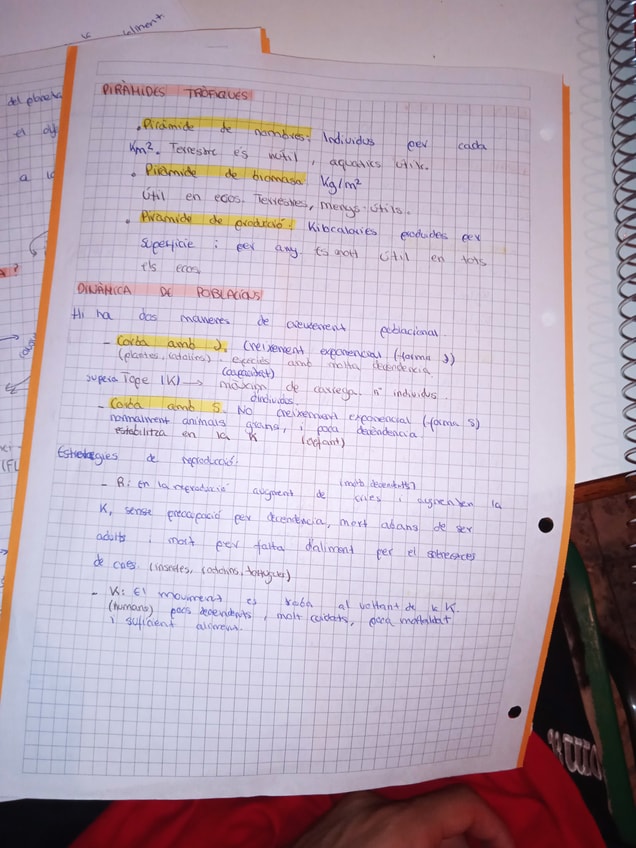 aliment
del planeta
el
a la
PIRÀMIDES TRÒFIQUES
• Piràmide de nombres: Individus per cada
Km². Terrestre és inútil, aquatics útils.
• Piràmide de biomasa: Kg/m²
Útil en ecos. Terrestres, menys útils.
• Piràmide de producció: Kilocalories produides per
superficie i per any és molt útil en tots
els ecos.
DINÀMICA DE POBLACIONS
Hi ha dos maneres de creixement poblacional
- Corba amb J. Creixement exponencial (forma J)
(plantes, ) espècies amb molta decendència
(capacitat)
supera Tope (K) → màxim de carrega. nº individus.
d'individus
- Corba amb S. No creixement exponencial (forma S)
normalment animals grans, i poca decendència
estabilitza en la K (elefant)
Estrategies de reproducció:
(molts decendents)
- R: En la reproducció augment de cries i augmenten la
K, sense preocupació per decendencia, mort abans de ser
adults i mort per falta d'aliment per el
de cries. (insectes, , tortugues)
- K: El moviment es troba al voltant de la K.
(humans) pocs decendents, molt cuidats, poca mortalitat
i suficient aliment.